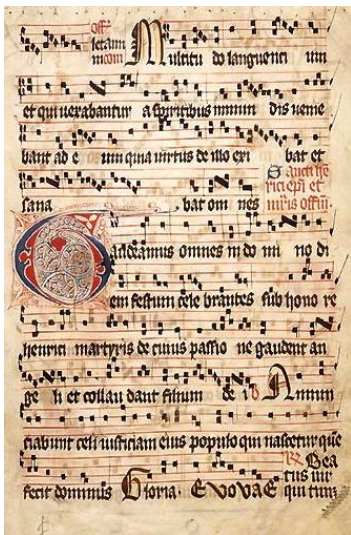 offm
letam
Multitu do languenti um
et qui vexabantur a spiritibus inmun dis venie
bant ad e um quia virtus de illo exi bat et
Sancti he
rici epi et
sana bat om nes mris offm
Gaudeamus omnes in do mi no di
em festum cele brantes sub hono re
henrici martyris de cuius passio ne gaudent an
ge li et collau dant filium de i Annun
ciabunt celi iusticiam eius populo qui nascetur que
Bea
fecit dominus Gloria. Evovae
tus vir
qui tim